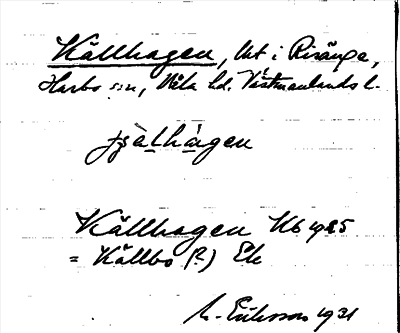 Källhagen, lht i Risänge,
Harbo sn, Våla hd. Västmanlands l.
Källhagen Kb 1925
= Källbo (?) Ek
Eriksson 1931